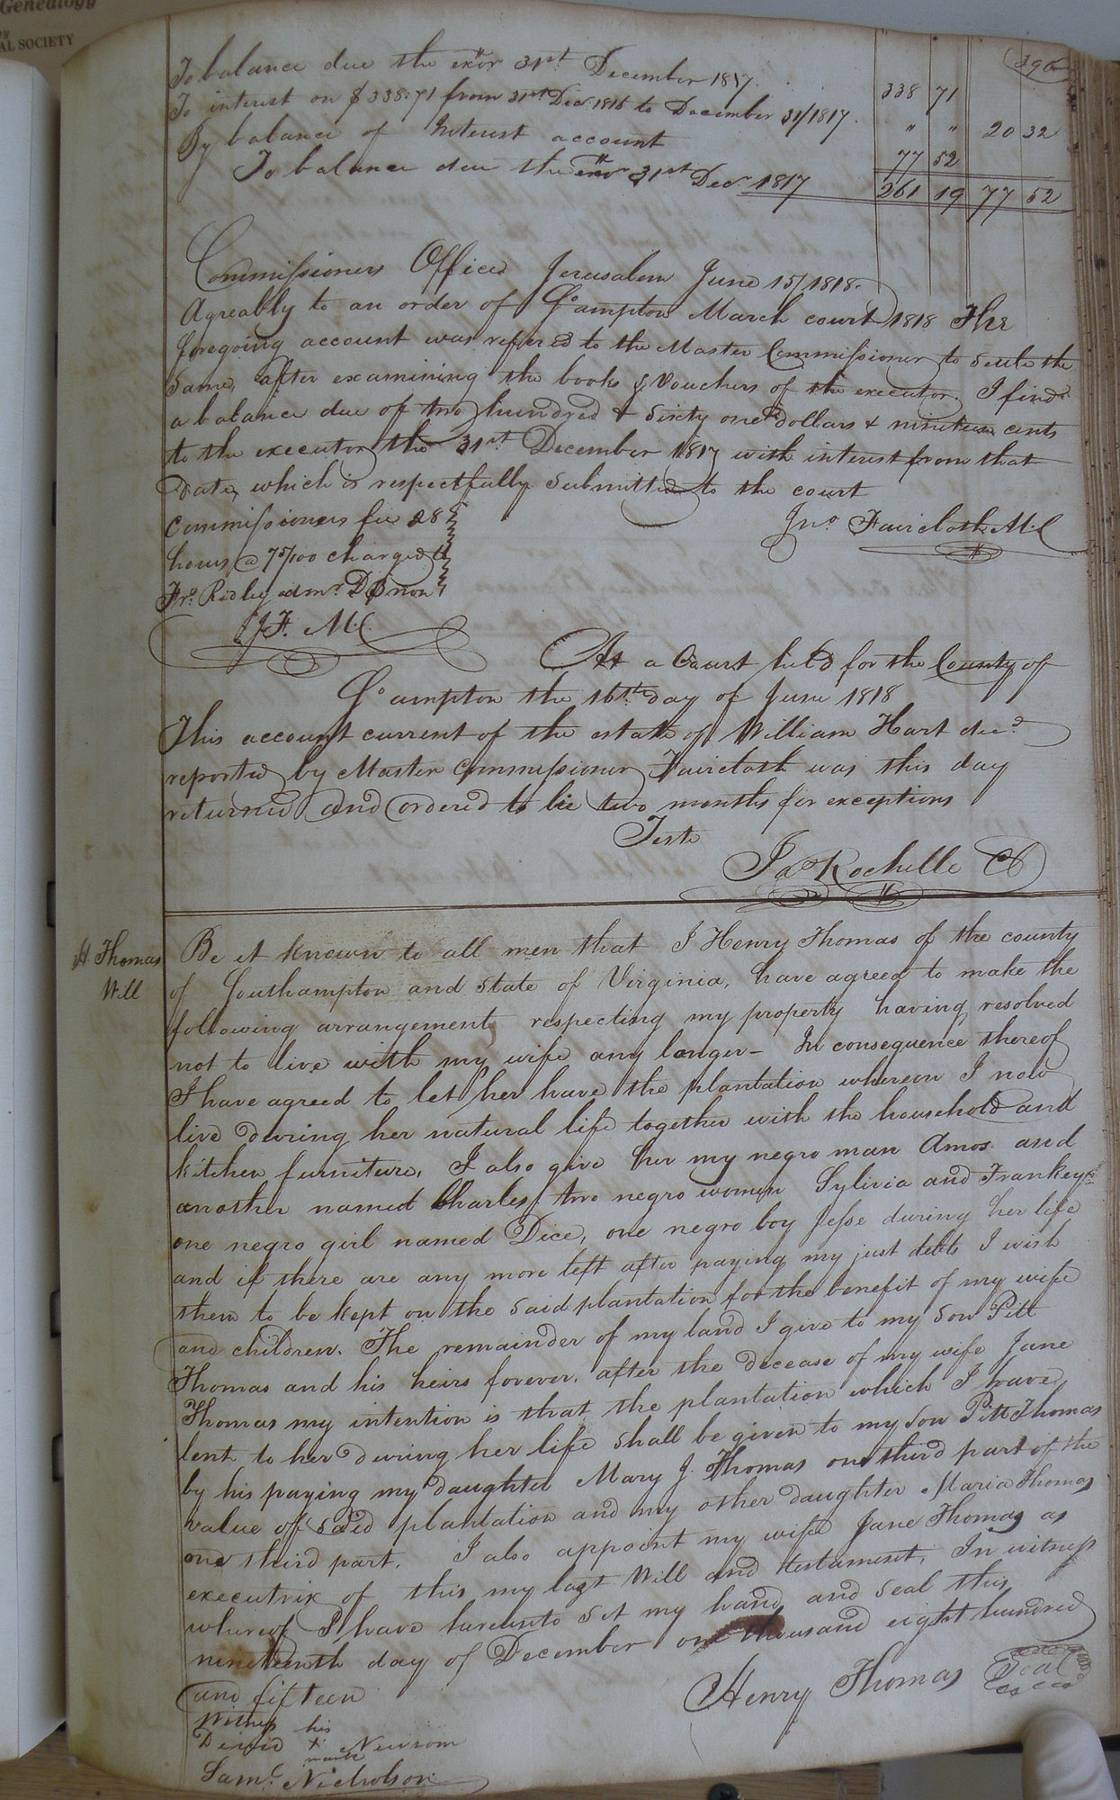 Genealogy
AL SOCIETY
To balance due the exor 31st December 1817. 338 71
To interest on $338.71 from 31st Decr 1816 to December 31/1817. " " 20 32
By balance of Interest account 77 52
To balance due the exor 31st Decr 1817 261 19 77 52
Commissioners Office Jerusalem June 15/1818.
Agreably to an order of So ampton March court 1818 The
foregoing account was refered to the Master Commissioner to settle the
same, after examining the books & Vouchers of the executor. I find
a balance due of two hundred & sixty one dollars & nineteen cents
to the executor the 31st December 1817 with interest from that
date, which is respectfully submitted to the court
Commissioners fee 28 Jno Faircloth M.C
hours @ 75/100 charged
Frs Ridley admr D B non
J.F. M.C.
At a Court held for the County of
So ampton the 16th day of June 1818
This account current of the estate of William Hart decd
reported by Master Commissioner Faircloth was this day
returned and ordered to lie two months for exceptions
Teste
Ja Rochelle CC
H Thomas
Will
Be it known to all men that I Henry Thomas of the county
of Southampton and state of Virginia, have agreed to make the
following arrangement respecting my property having resolved
not to live with my wife any longer - In consequence thereof
I have agreed to let her have the plantation whereon I now
live during her natural life together with the household and
kitchen furniture. I also give her my negro man Amos and
another named Charles, two negro women Sylivia and Frankey
one negro girl named Dice, one negro boy Jesse during her life
and if there are any more left after paying my just debts I wish
them to be kept on the said plantation for the benefit of my wife
and children. The remainder of my land I give to my Son Pitt
Thomas and his heirs forever. after the decease of my wife Jane
Thomas my intention is that the plantation which I have
lent to her during her life shall be given to my son Pitt Thomas
by his paying my daughter Mary J. Thomas one third part of the
value of said plantation and my other daughter Maria Thomas
one third part. I also appoint my wife Jane Thomas as
executrix of this my last Will and testament. In witness
whereof I have hereunto set my hand and seal this
nineteenth day of December one thousand eight hundred
and fifteen Henry Thomas Seal
Witness his
David x Newsom
mark
Saml Nicholson